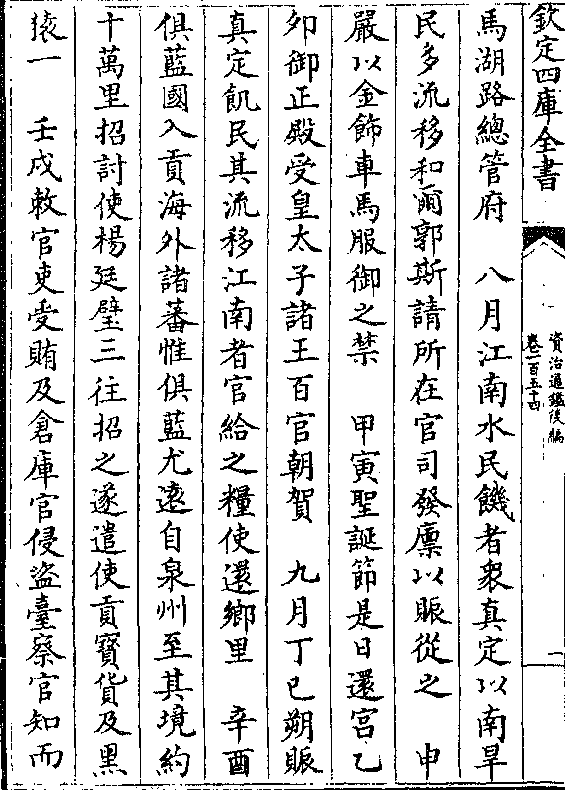 欽定四庫全書
資治通鑑後編
卷一百五十四
一
馬湖路總管府　八月江南水民饑者衆真定以南旱
民多流移和爾郭斯請所在官司發廩以賑從之　申
嚴以金飾車馬服御之禁　甲寅聖誕節是日還宮乙
夘御正殿受皇太子諸王百官朝賀　九月丁巳朔賑
真定飢民其流移江南者官給之糧使還鄉里　辛酉
俱藍國入貢海外諸蕃惟俱藍尤遠自泉州至其境約
十萬里招討使楊廷璧三往招之遂遣使貢寶貨及黑
猿一　壬戌敕官吏受賄及倉庫官侵盜臺察官知而